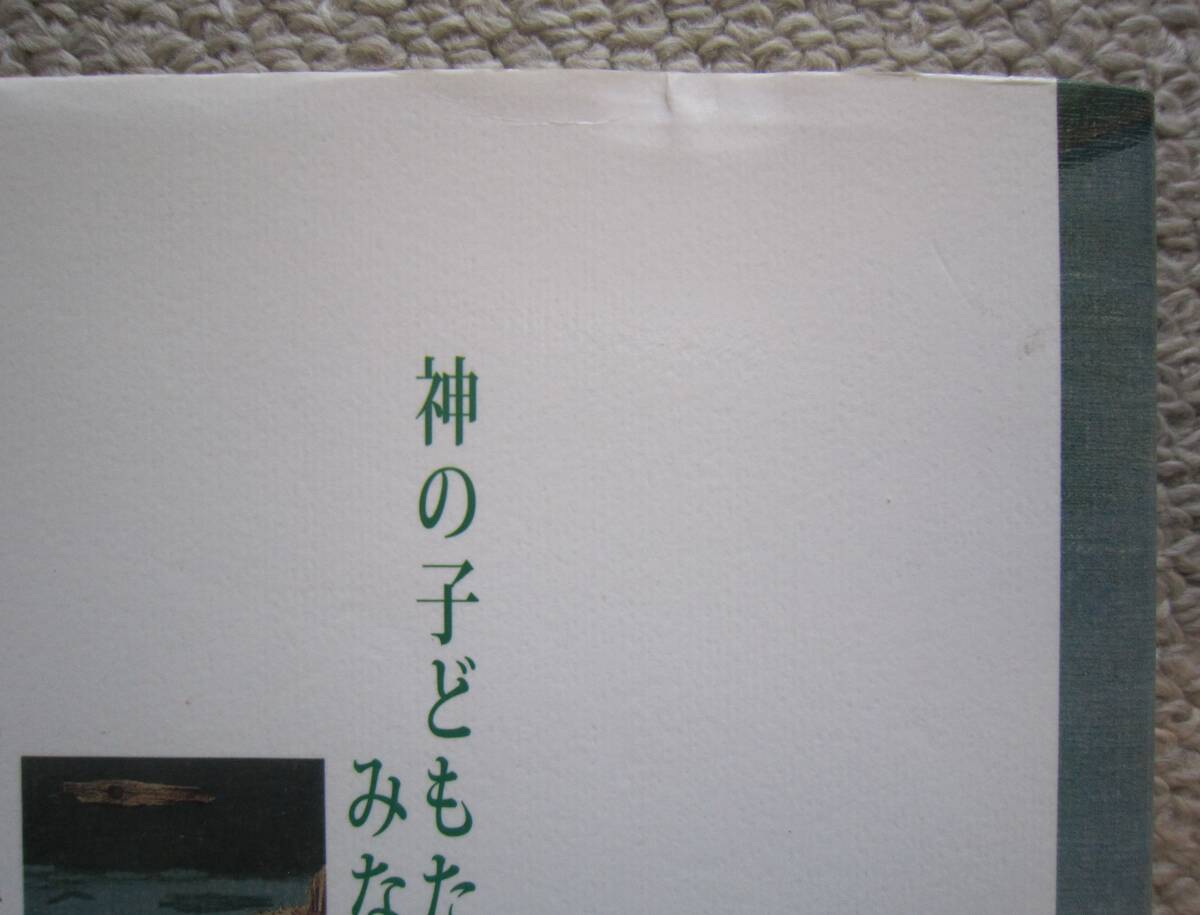 神の子どもた
みな